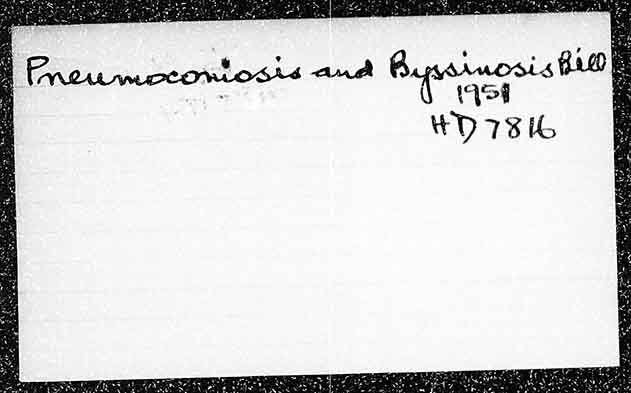 Pneumoconiosis and Byssinosis Bill
1951
HD 7816